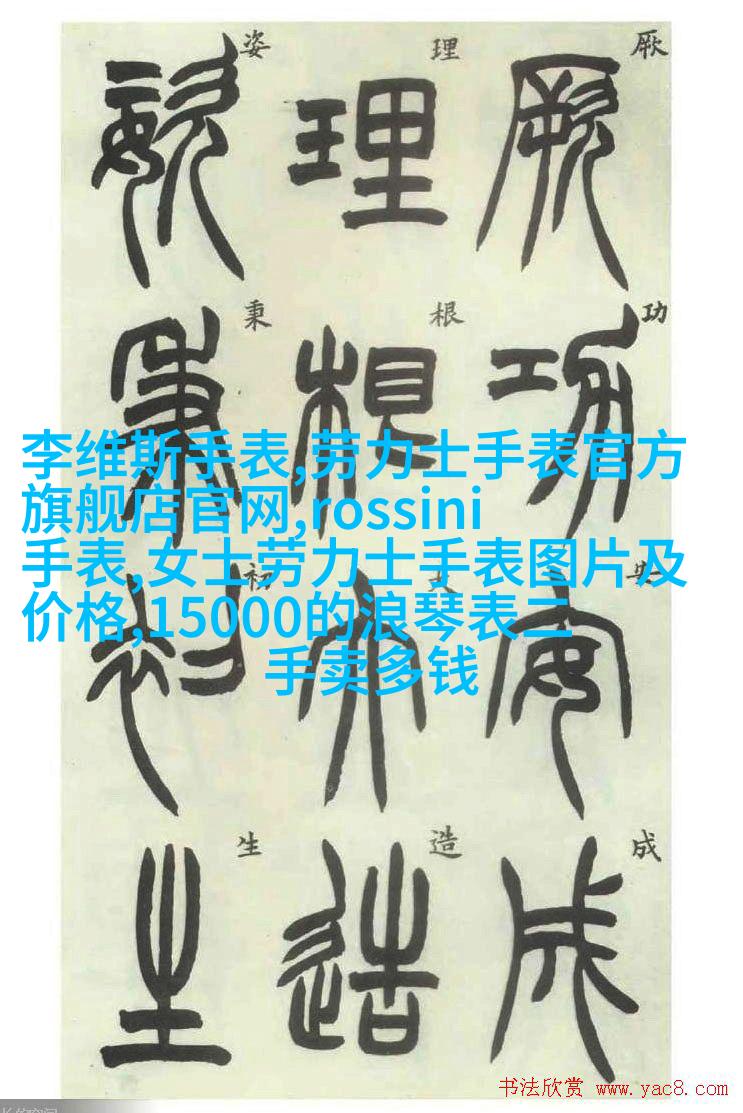 厥功安成
厥功成
理根大造
理根造
姿秉初生
姿秉初生
李维斯手表,劳力士手表官方
旗舰店官网,rossini
手表,女士劳力士手表图片及
价格,15000的浪琴表二
手卖多钱
书法欣赏 www.yac8.com